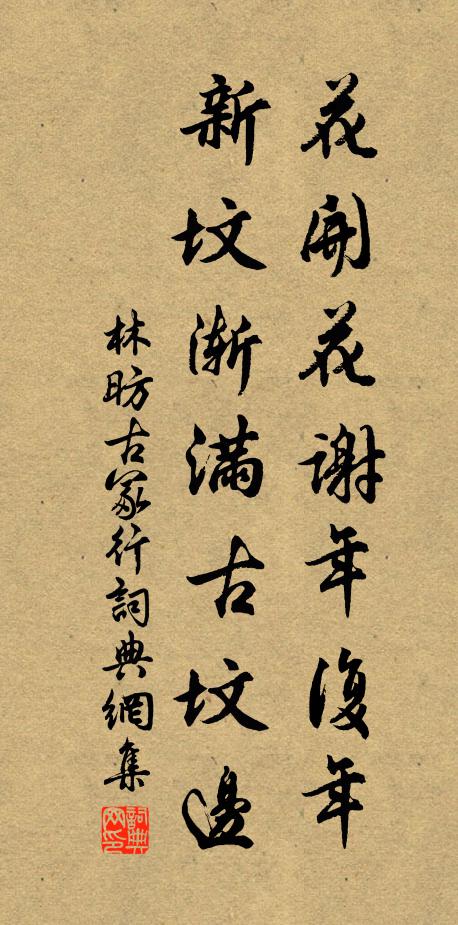 花開花謝年復年
新坟漸滿古坟邊
林昉古冢行詞典網集
詞典网印